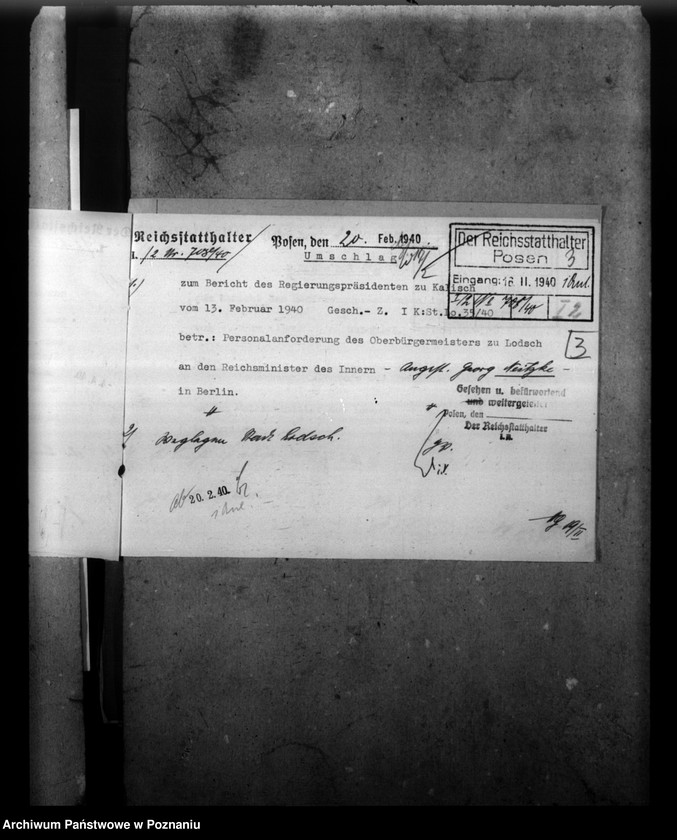 Reichsstatthalter
I/2 Nr. 708/40
Posen, den 20. Feb. 1940
Umschlag
Der Reichsstatthalter
Posen 3
Eingang: 16. II. 1940 1 Anl.
I/2 Nr. 708/40 I 2
1)
zum Bericht des Regierungspräsidenten zu Kalisch
vom 13. Februar 1940 Gesch.- Z. I K:St.Lo.35/40
betr.: Personalanforderung des Oberbürgermeisters zu Lodsch
3
an den Reichsminister des Innern - Angest. Georg Neitzke -
in Berlin.
Gesehen u. befürwortend
und weitergeleitet
Posen, den
Der Reichsstatthalter
I.A.
2) Weglegen Stadt Lodsch.
gv.
ab 20.2.40
1 Anl.
19/II
Archiwum Państwowe w Poznaniu